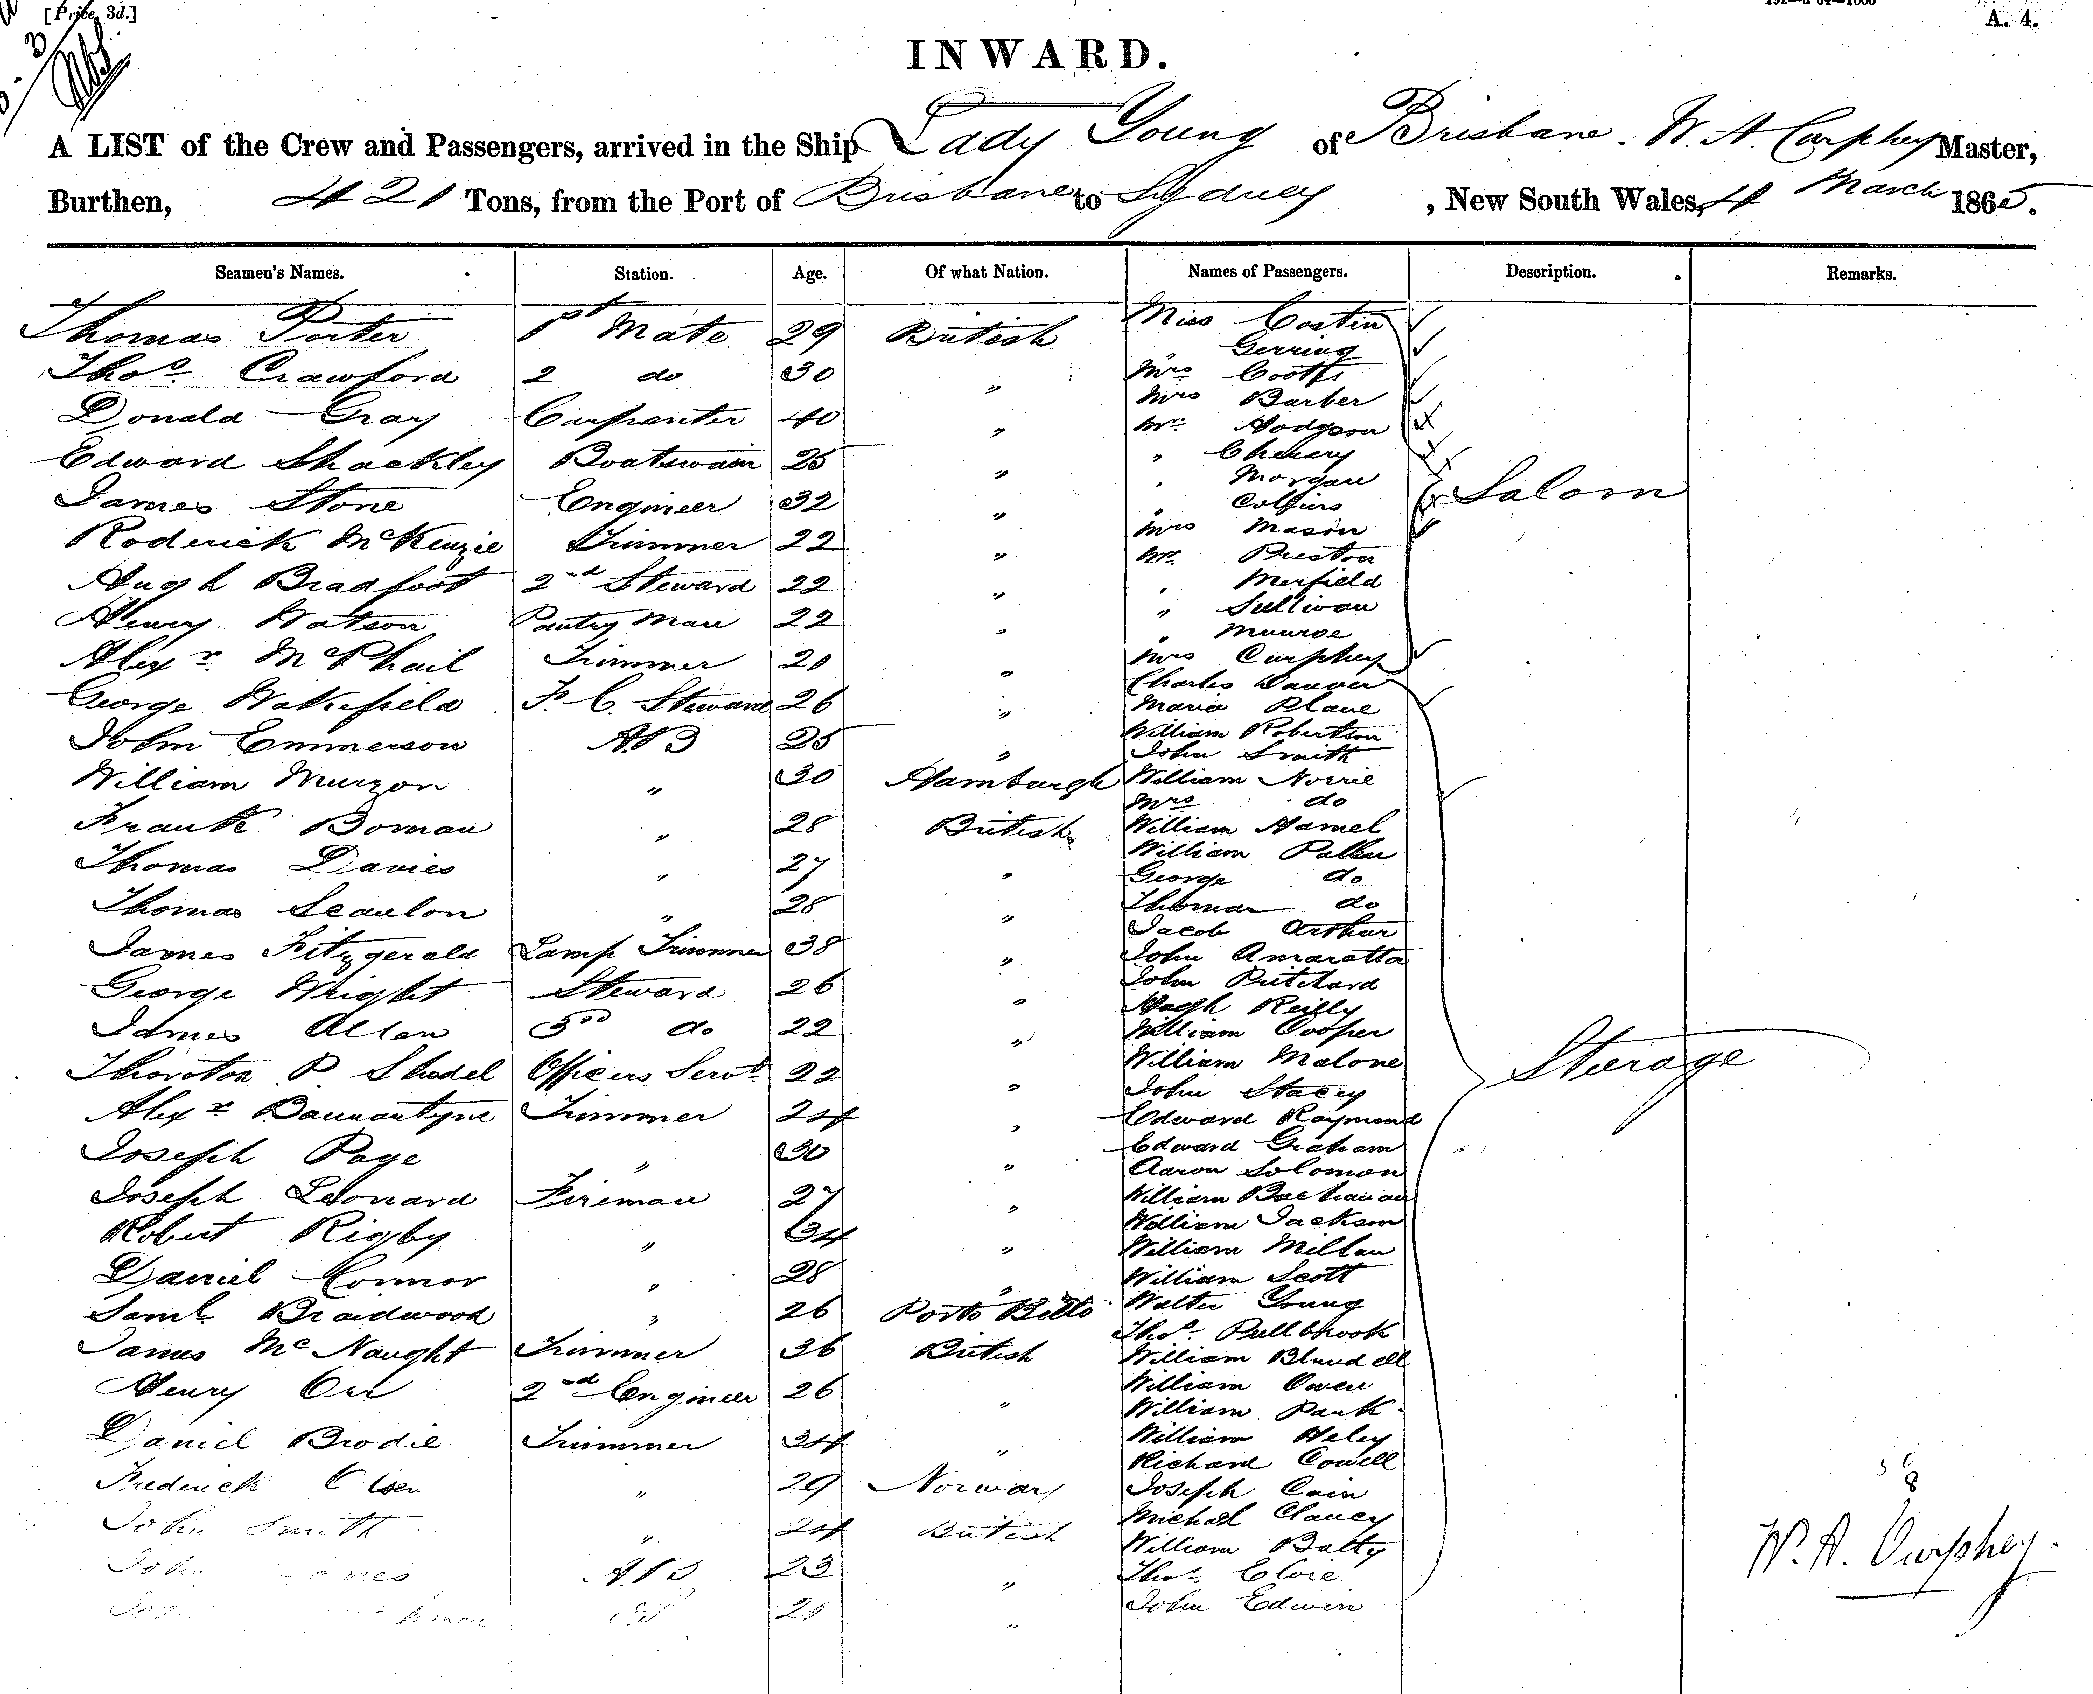 [Price, 3d.]
A. 4.
INWARD.
A LIST of the Crew and Passengers, arrived in the Ship Lady Young of Brisbane. W. A. Curphey Master,
Burthen, 421 Tons, from the Port of Brisbane to Sydney, New South Wales, 4 March 1865.
Seamen's Names. Station. Age. Of what Nation. Names of Passengers. Description. Remarks.
Thomas Porter 1st Mate 29 British Miss Costin
Gerring
Thos. Crawford 2 do 30 " Mrs
Mrs Barber
Donald Gray Carpenter 40 " Mr. Hodgson
Edward Shackley Boatswain 25 " "
" Morgan
James Stone Engineer 32 " " Collins
Salom
Roderick McKenzie Trimmer 22 " Mrs Mason
Mr. Preston
Hugh Bradfoot 2nd Steward 22 " " Merfield
" Sullivan
Henry Watson Pantry Man 22 " " Munroe
Alexr. McPhail Trimmer 20 " Mrs Curphey
Charles
George Wakefield F. C. Steward 26 " Maria Plane
William Robertson
John Emmerson AB 25 " John Smith
William Murzon " 30 Hamburgh William Norrie
Mrs do
Frank Boman " 28 British William Hamel
William
Thomas Davies " 27 " George do
Thomas Scanlon " 28 " Thomas do
Jacob Arthur
James Fitzgerald Lamp Trimmer 38 " John Amaratta
George Wright Steward 26 " John Pritchard
Hugh Reilly
James Allan 3rd do 22 " William Cooper
William Malone
Sterage
Thornton P. Shadel Officers Servt. 22 " John Stacey
Alexr. Bannantyne Trimmer 24 " Edward Raymond
Joseph Page " 30 " Edward Graham
Aaron Solomon
Joseph Leonard Fireman 27 " William Buchanan
William Jackson
Robert Rigby " 34 " William Millan
Daniel Connor " 28 " William Scott
Saml. Braidwood " 26 Porto Bello Walter Young
Thos. Pullbrook
James McNaught Trimmer 36 British William Blundell
Henry Orr 2nd Engineer 26 " William Owen
William Pank
Daniel Brodie Trimmer 34 " William Haley
Richard Cowell
Frederick Olsen " 29 Norway Joseph Cain
Michael Clancy
John Smith " 24 British William Batty
John AB 23 " Thos.
20 " John Edwin
W. A. Curphey.